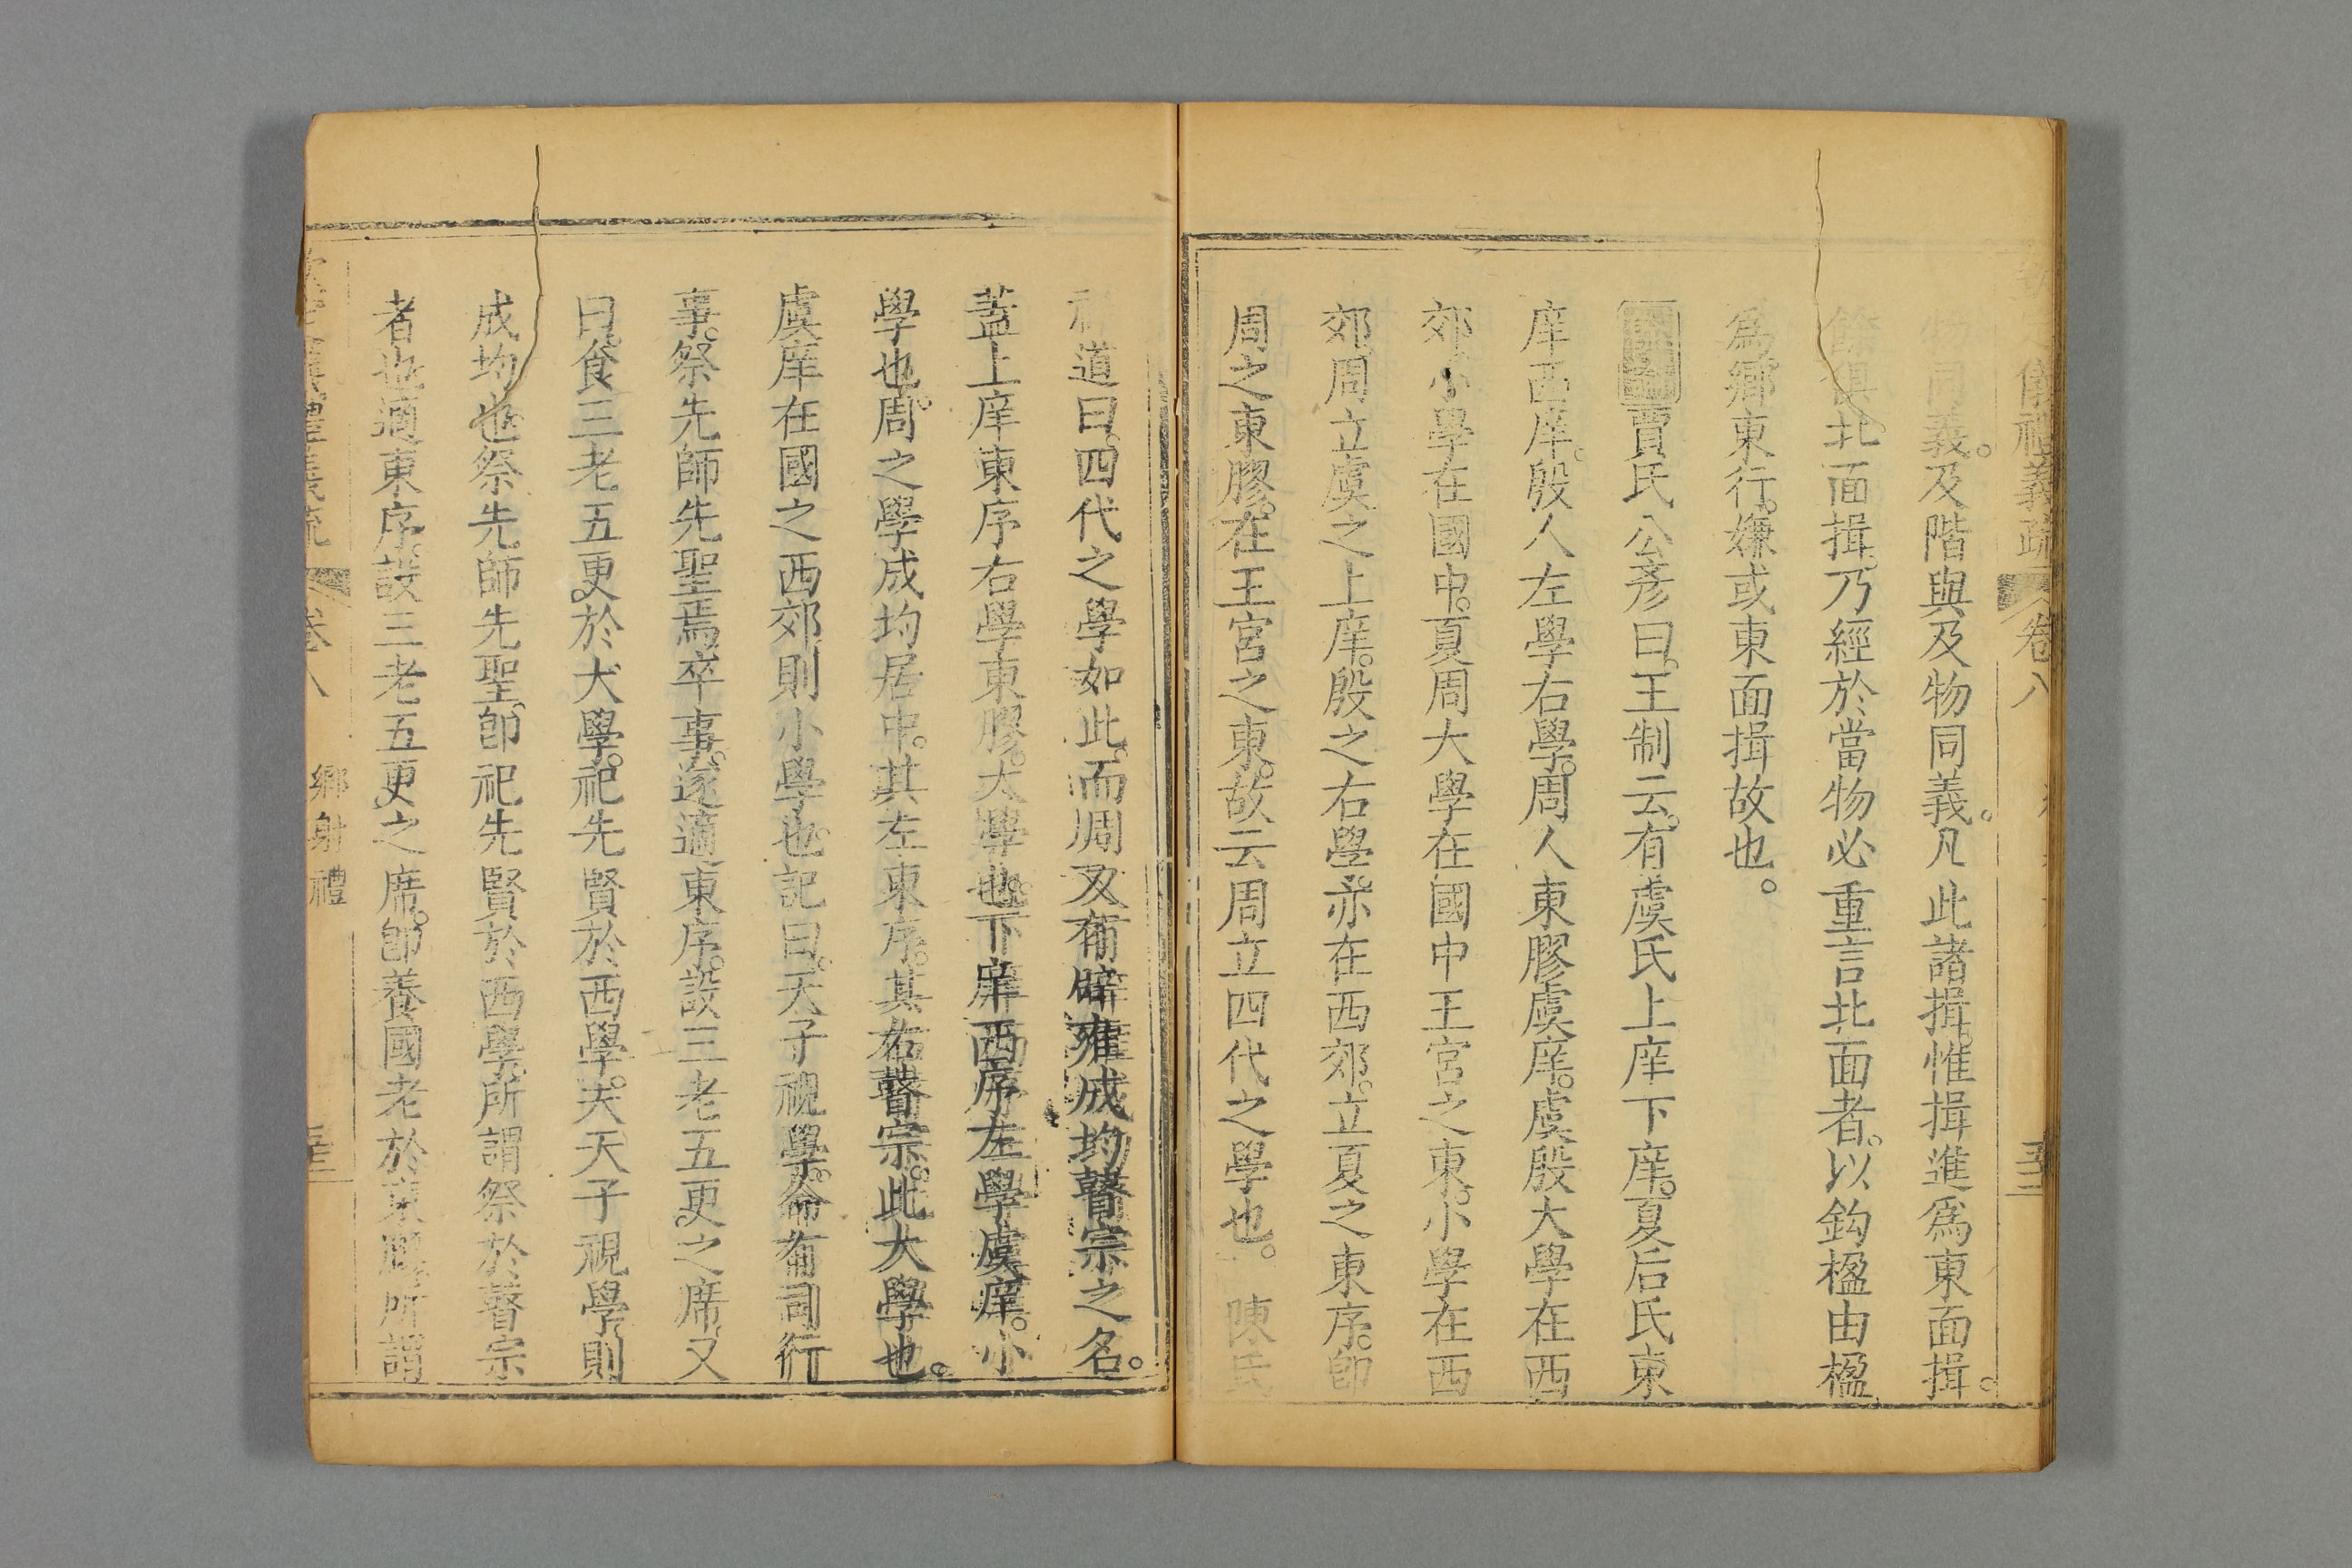 儀禮義疏 卷八
義。及階與及物同義。凡此諸揖。惟揖進爲東面揖。
餘俱北面揖。乃經於當物必重言北面者。以鈎楹由楹
爲鄉東行。嫌或東面揖故也。
賈氏公彥曰。王制云。有虞氏上庠下庠。夏后氏東
序西序。殷人左學右學。周人東膠虞庠。虞殷大學在西
郊。小學在國中。夏周大學在國中王宮之東。小學在西
郊。周立虞之上庠。殷之右學。亦在西郊。立夏之東序。卽
周之東膠。在王宮之東。故云周立四代之學也。 陳氏
道曰。四代之學如此。而周又有辟雍成均瞽宗之名。
蓋上庠東序右學東膠。大學也。下庠西序左學虞庠。小
學也。周之學成均居中。其左東序。其右瞽宗。此大學也。
虞庠在國之西郊。則小學也。記曰。天子視學。命有司行
事。祭先師先聖焉。卒事。遂適東序。設三老五更之席。又
曰。食三老五更於大學。祀先賢於西學。夫天子視學。則
成均也。祭先師先聖。卽祀先賢於西學。所謂祭於瞽宗
者也。適東序。設三老五更之席。卽養國老於東膠。所謂
卷八 鄉射禮